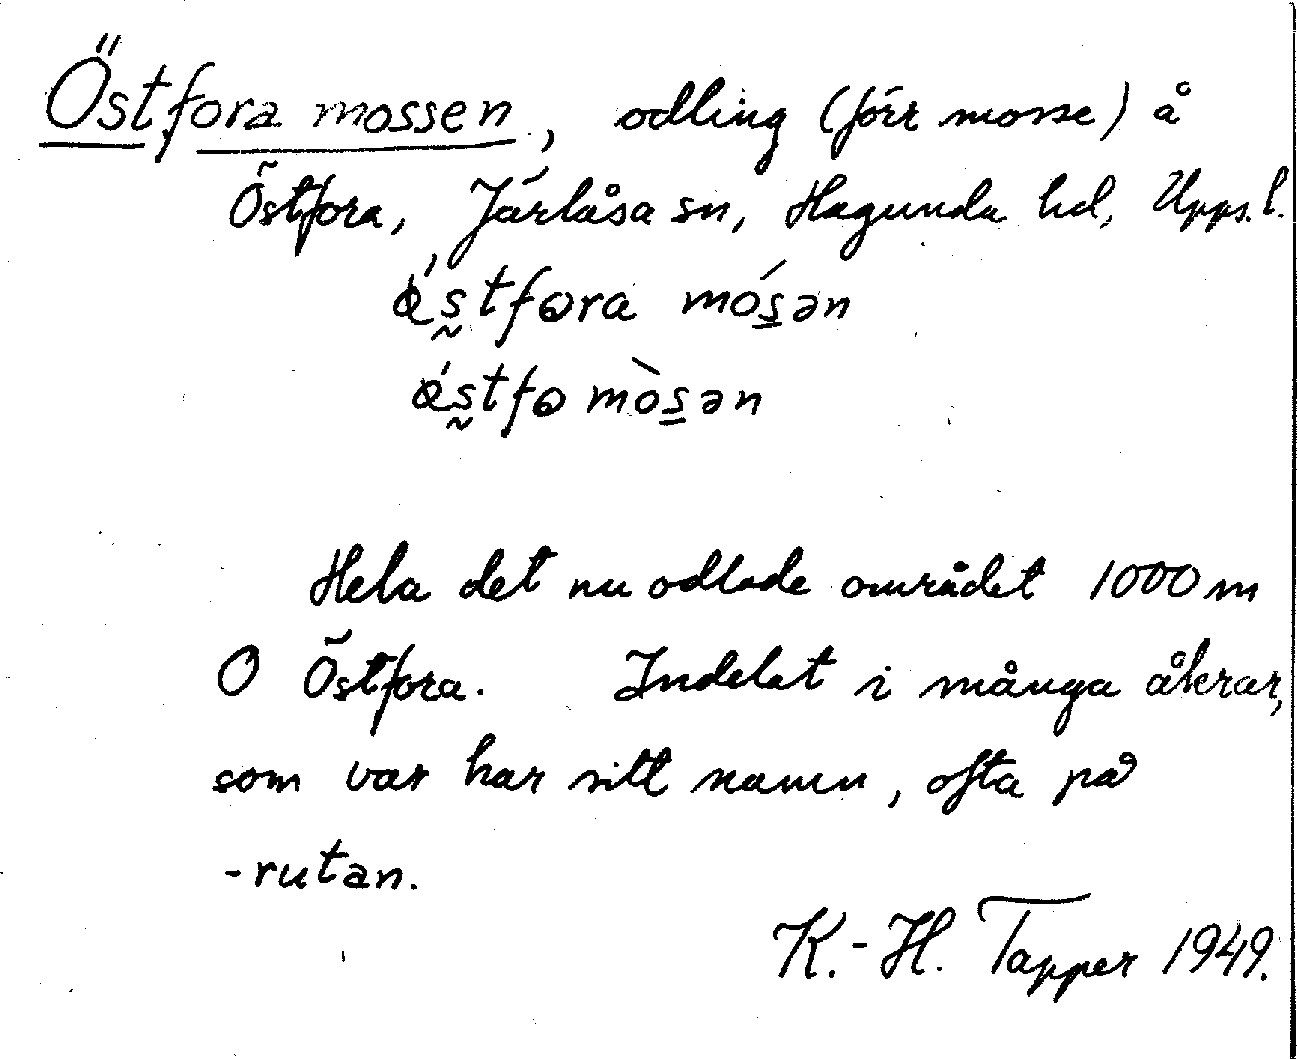 Östfora mossen, odling (förr mosse) å
Östfora, Järlåsa sn, Hagunda hd, Upps. l.
ǿstfora mósən
ǿstfo mòsən
Hela det nu odlade området 1000 m
O Östfora. Indelat i många åkrar,
som var har sitt namn, ofta på
-rutan.
K.-H. Tapper 1949.